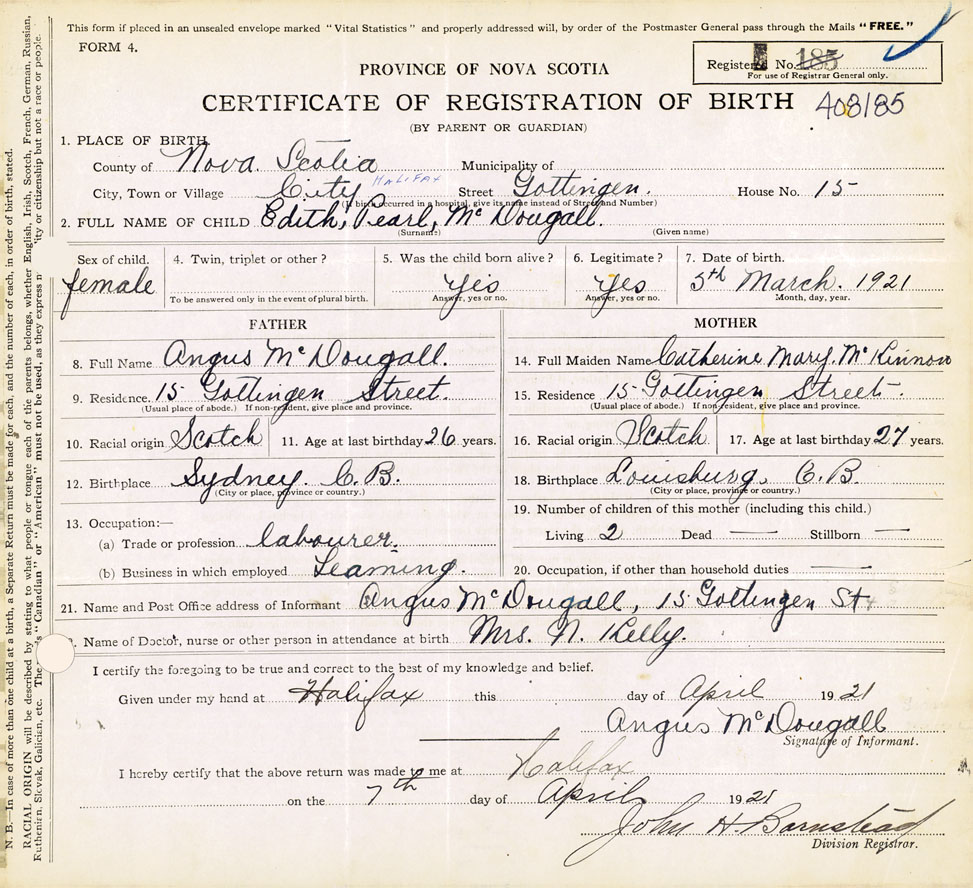 This form if placed in an unsealed envelope marked "Vital Statistics" and properly addressed will, by order of the Postmaster General pass through the Mails "FREE."
FORM 4.
Registered No. 185
For use of Registrar General only.
PROVINCE OF NOVA SCOTIA
CERTIFICATE OF REGISTRATION OF BIRTH 408/85
(BY PARENT OR GUARDIAN)
1. PLACE OF BIRTH
County of Nova Scotia Municipality of
City, Town or Village City HALIFAX Street Gottingen. House No. 15
(If birth occurred in a hospital, give its name instead of Street and Number)
2. FULL NAME OF CHILD Edith, Pearl, Mc Dougall.
(Surname) (Given name)
Sex of child. 4. Twin, triplet or other? 5. Was the child born alive? 6. Legitimate? 7. Date of birth.
female Yes Yes 5th March. 1921
To be answered only in the event of plural birth. Answer, yes or no. Answer, yes or no. Month, day, year.
FATHER
8. Full Name Angus McDougall.
9. Residence. 15 Gottingen Street.
(Usual place of abode.) If non-resident, give place and province.
10. Racial origin Scotch 11. Age at last birthday 26 years.
12. Birthplace Sydney. C.B.
(City or place, province or country.)
13. Occupation:—
(a) Trade or profession labourer.
(b) Business in which employed Teaming.
MOTHER
14. Full Maiden Name Catherine Mary. McKinnon
15. Residence 15 Gottingen Street.
(Usual place of abode.) If non-resident, give place and province.
16. Racial origin Scotch 17. Age at last birthday 27 years.
18. Birthplace Louisburg, C.B.
(City or place, province or country.)
19. Number of children of this mother (including this child.)
Living 2 Dead — Stillborn —
20. Occupation, if other than household duties —
21. Name and Post Office address of Informant Angus McDougall, 15 Gottingen St.
Name of Doctor, nurse or other person in attendance at birth Mrs. N. Kelly.
I certify the foregoing to be true and correct to the best of my knowledge and belief.
Given under my hand at Halifax this day of April 1921
Angus McDougall
Signature of Informant.
I hereby certify that the above return was made to me at Halifax
on the 7th day of April 1921
John H. Barnstead
Division Registrar.
N. B.—In case of more than one child at a birth, a Separate Return must be made for each, and the number of each, in order of birth, stated.
RACIAL ORIGIN will be described by stating to what people or tongue each of the parents belongs, whether English, Irish, Scotch, French, German, Russian,
Ruthenian, Slovak, Galician, etc. The "Canadian" or "American" must not be used, as they express citizenship but not a race or people.